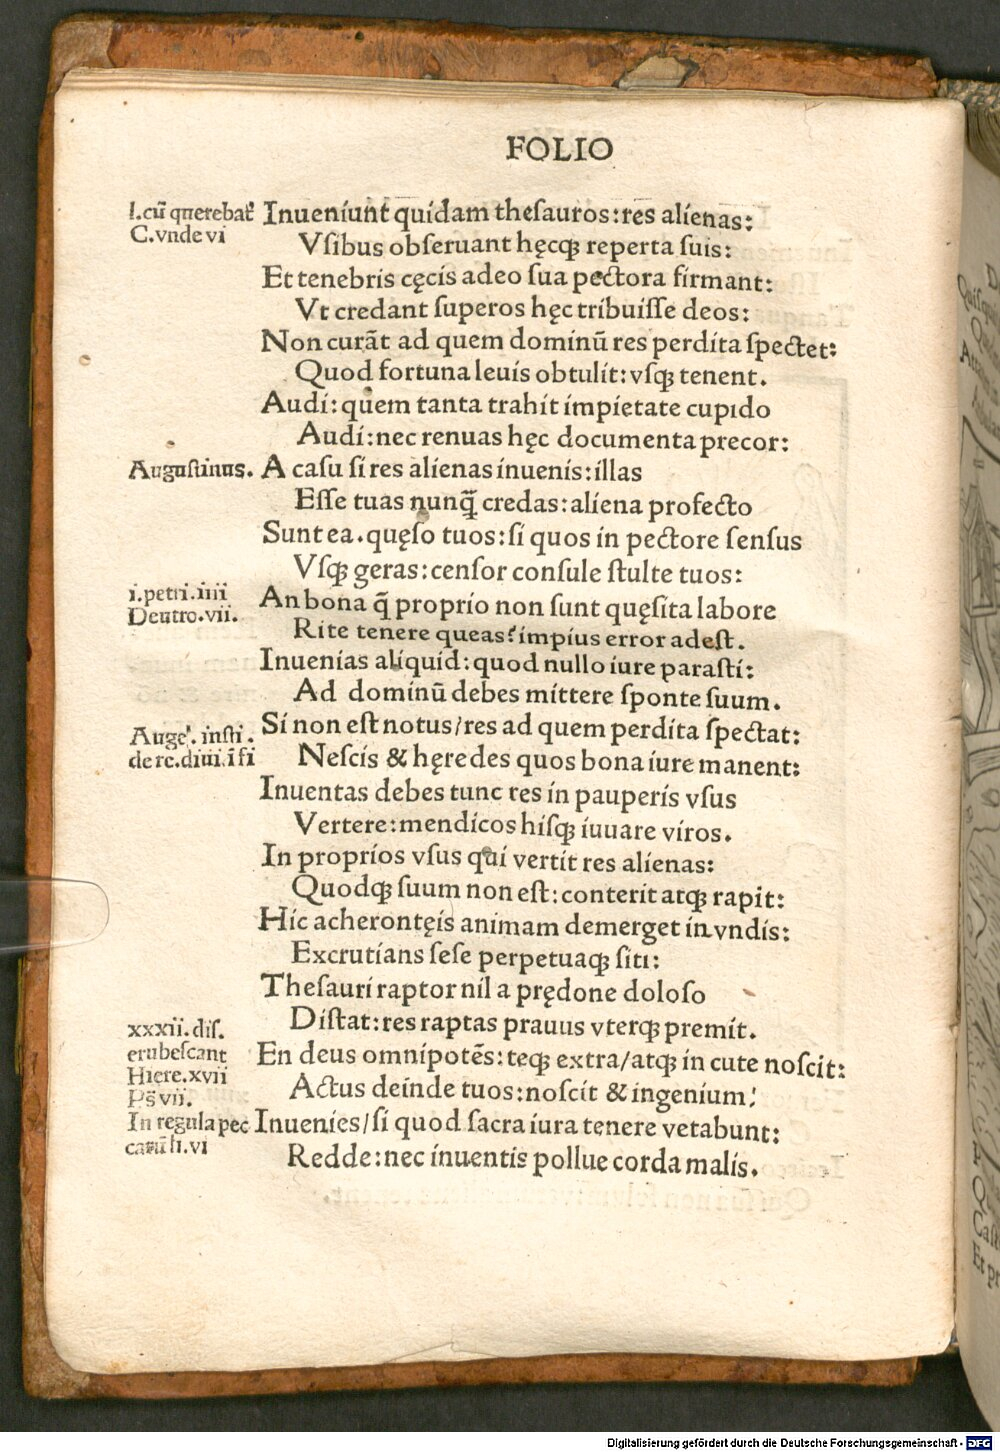 FOLIO
l.cū querebat᷑
C.vnde vi
Inueniunt quidam theſauros:res alienas:
Vſibus obſeruant hęcqꝫ reperta ſuis:
Et tenebris cęcis adeo ſua pectora firmant:
Vt credant ſuperos hęc tribuiſſe deos:
Non curāt ad quem dominū res perdita ſpectet:
Quod fortuna leuis obtulit:vſqꝫ tenent.
Audi:quem tanta trahit impietate cupido
Audi:nec renuas hęc documenta precor:
Auguſtinus.
A caſu ſi res alienas inuenis:illas
Eſſe tuas nunq̄ credas:aliena profecto
Sunt ea.quęſo tuos:ſi quos in pectore ſenſus
Vſqꝫ geras:cenſor conſule ſtulte tuos:
i.petri.iiii
Deutro.vii.
An bona q̄ proprio non ſunt quęſita labore
Rite tenere queas?impius error adeſt.
Inuenias aliquid:quod nullo iure paraſti:
Ad dominū debes mittere ſponte ſuum.
Auge'. inſti.
de re.diui.ī fi
Si non eſt notus/res ad quem perdita ſpectat:
Neſcis & hęredes quos bona iure manent:
Inuentas debes tunc res in pauperis vſus
Vertere:mendicos hiſqꝫ iuuare viros.
In proprios vſus qui vertit res alienas:
Quodqꝫ ſuum non eſt:conterit atqꝫ rapit:
Hic acherontęis animam demerget in vndis:
Excrutians ſeſe perpetuaqꝫ ſiti:
Theſauri raptor nil a prędone doloſo
Diſtat:res raptas prauus vterqꝫ premit.
xxxii.diſ.
erubeſcant
Hiere.xvii
Ps̄ vii.
In regula pec
catū li.vi
En deus omnipotēs:teqꝫ extra/atqꝫ in cute noſcit:
Actus deinde tuos:noſcit & ingenium:
Inuenies/ſi quod ſacra iura tenere vetabunt:
Redde:nec inuentis pollue corda malis.
Digitalisierung gefördert durch die Deutsche Forschungsgemeinschaft - DFG